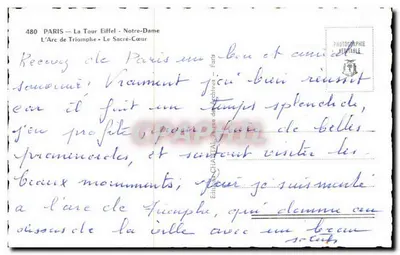 480 PARIS — La Tour Eiffel - Notre-Dame
L'Arc de Triomphe - Le Sacré-Cœur
PHOTOGRAPHIE
VÉRITABLE
Recevez de Paris un bon et amical
souvenir, Vraiment j'ai bien réussit
car il fait un temps splendide,
j'en profite, pour faire de belles
promenades, et surtout visiter les
beaux monuments, je suis monté
a l'arc de triomphe, qui domine au
dessous de la ville avec un beau
soleil
CPARAMA